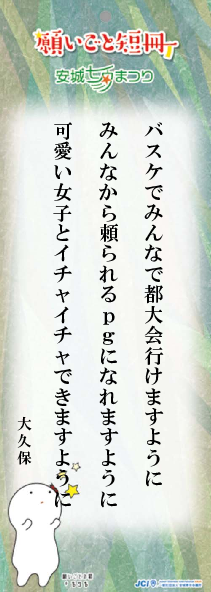 願いごと短冊
安城七夕まつり
バスケでみんなで都大会行けますように
みんなから頼られるpgになれますように
可愛い女子とイチャイチャできますように
大久保
願いごと短冊
JCI